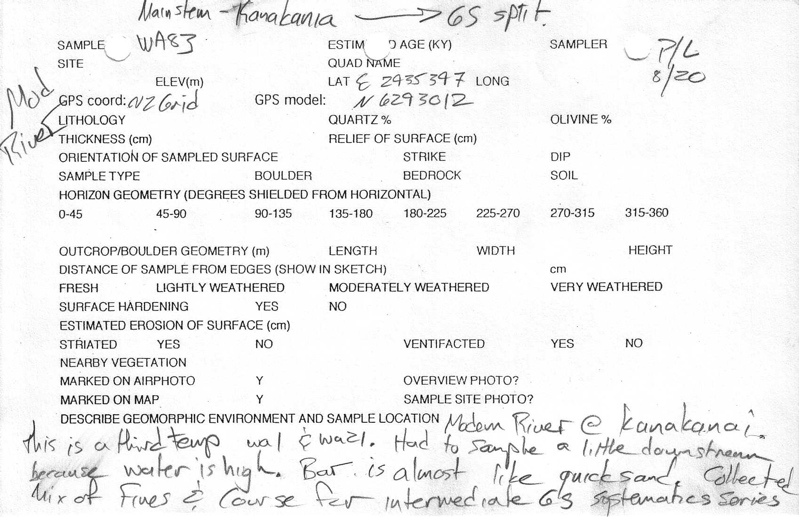 Mainstem - Kanakania → GS split.
SAMPLE WA83 ESTIM D AGE (KY) SAMPLER P/L
SITE QUAD NAME 8/20
ELEV(m) LAT E 2935397 LONG
Mod River
GPS coord: NZ Grid GPS model: N 6293012
LITHOLOGY QUARTZ % OLIVINE %
THICKNESS (cm) RELIEF OF SURFACE (cm)
ORIENTATION OF SAMPLED SURFACE STRIKE DIP
SAMPLE TYPE BOULDER BEDROCK SOIL
HORIZON GEOMETRY (DEGREES SHIELDED FROM HORIZONTAL)
0-45 45-90 90-135 135-180 180-225 225-270 270-315 315-360
OUTCROP/BOULDER GEOMETRY (m) LENGTH WIDTH HEIGHT
DISTANCE OF SAMPLE FROM EDGES (SHOW IN SKETCH) cm
FRESH LIGHTLY WEATHERED MODERATELY WEATHERED VERY WEATHERED
SURFACE HARDENING YES NO
ESTIMATED EROSION OF SURFACE (cm)
STRIATED YES NO VENTIFACTED YES NO
NEARBY VEGETATION
MARKED ON AIRPHOTO Y OVERVIEW PHOTO?
MARKED ON MAP Y SAMPLE SITE PHOTO?
DESCRIBE GEOMORPHIC ENVIRONMENT AND SAMPLE LOCATION Modern River @ Kanakanai.
This is a third temp wa1 & wa21. Had to sample a little downstream
because water is high. Bar is almost like quicksand. Collected
Mix of Fines & Course for intermediate GS systematics series